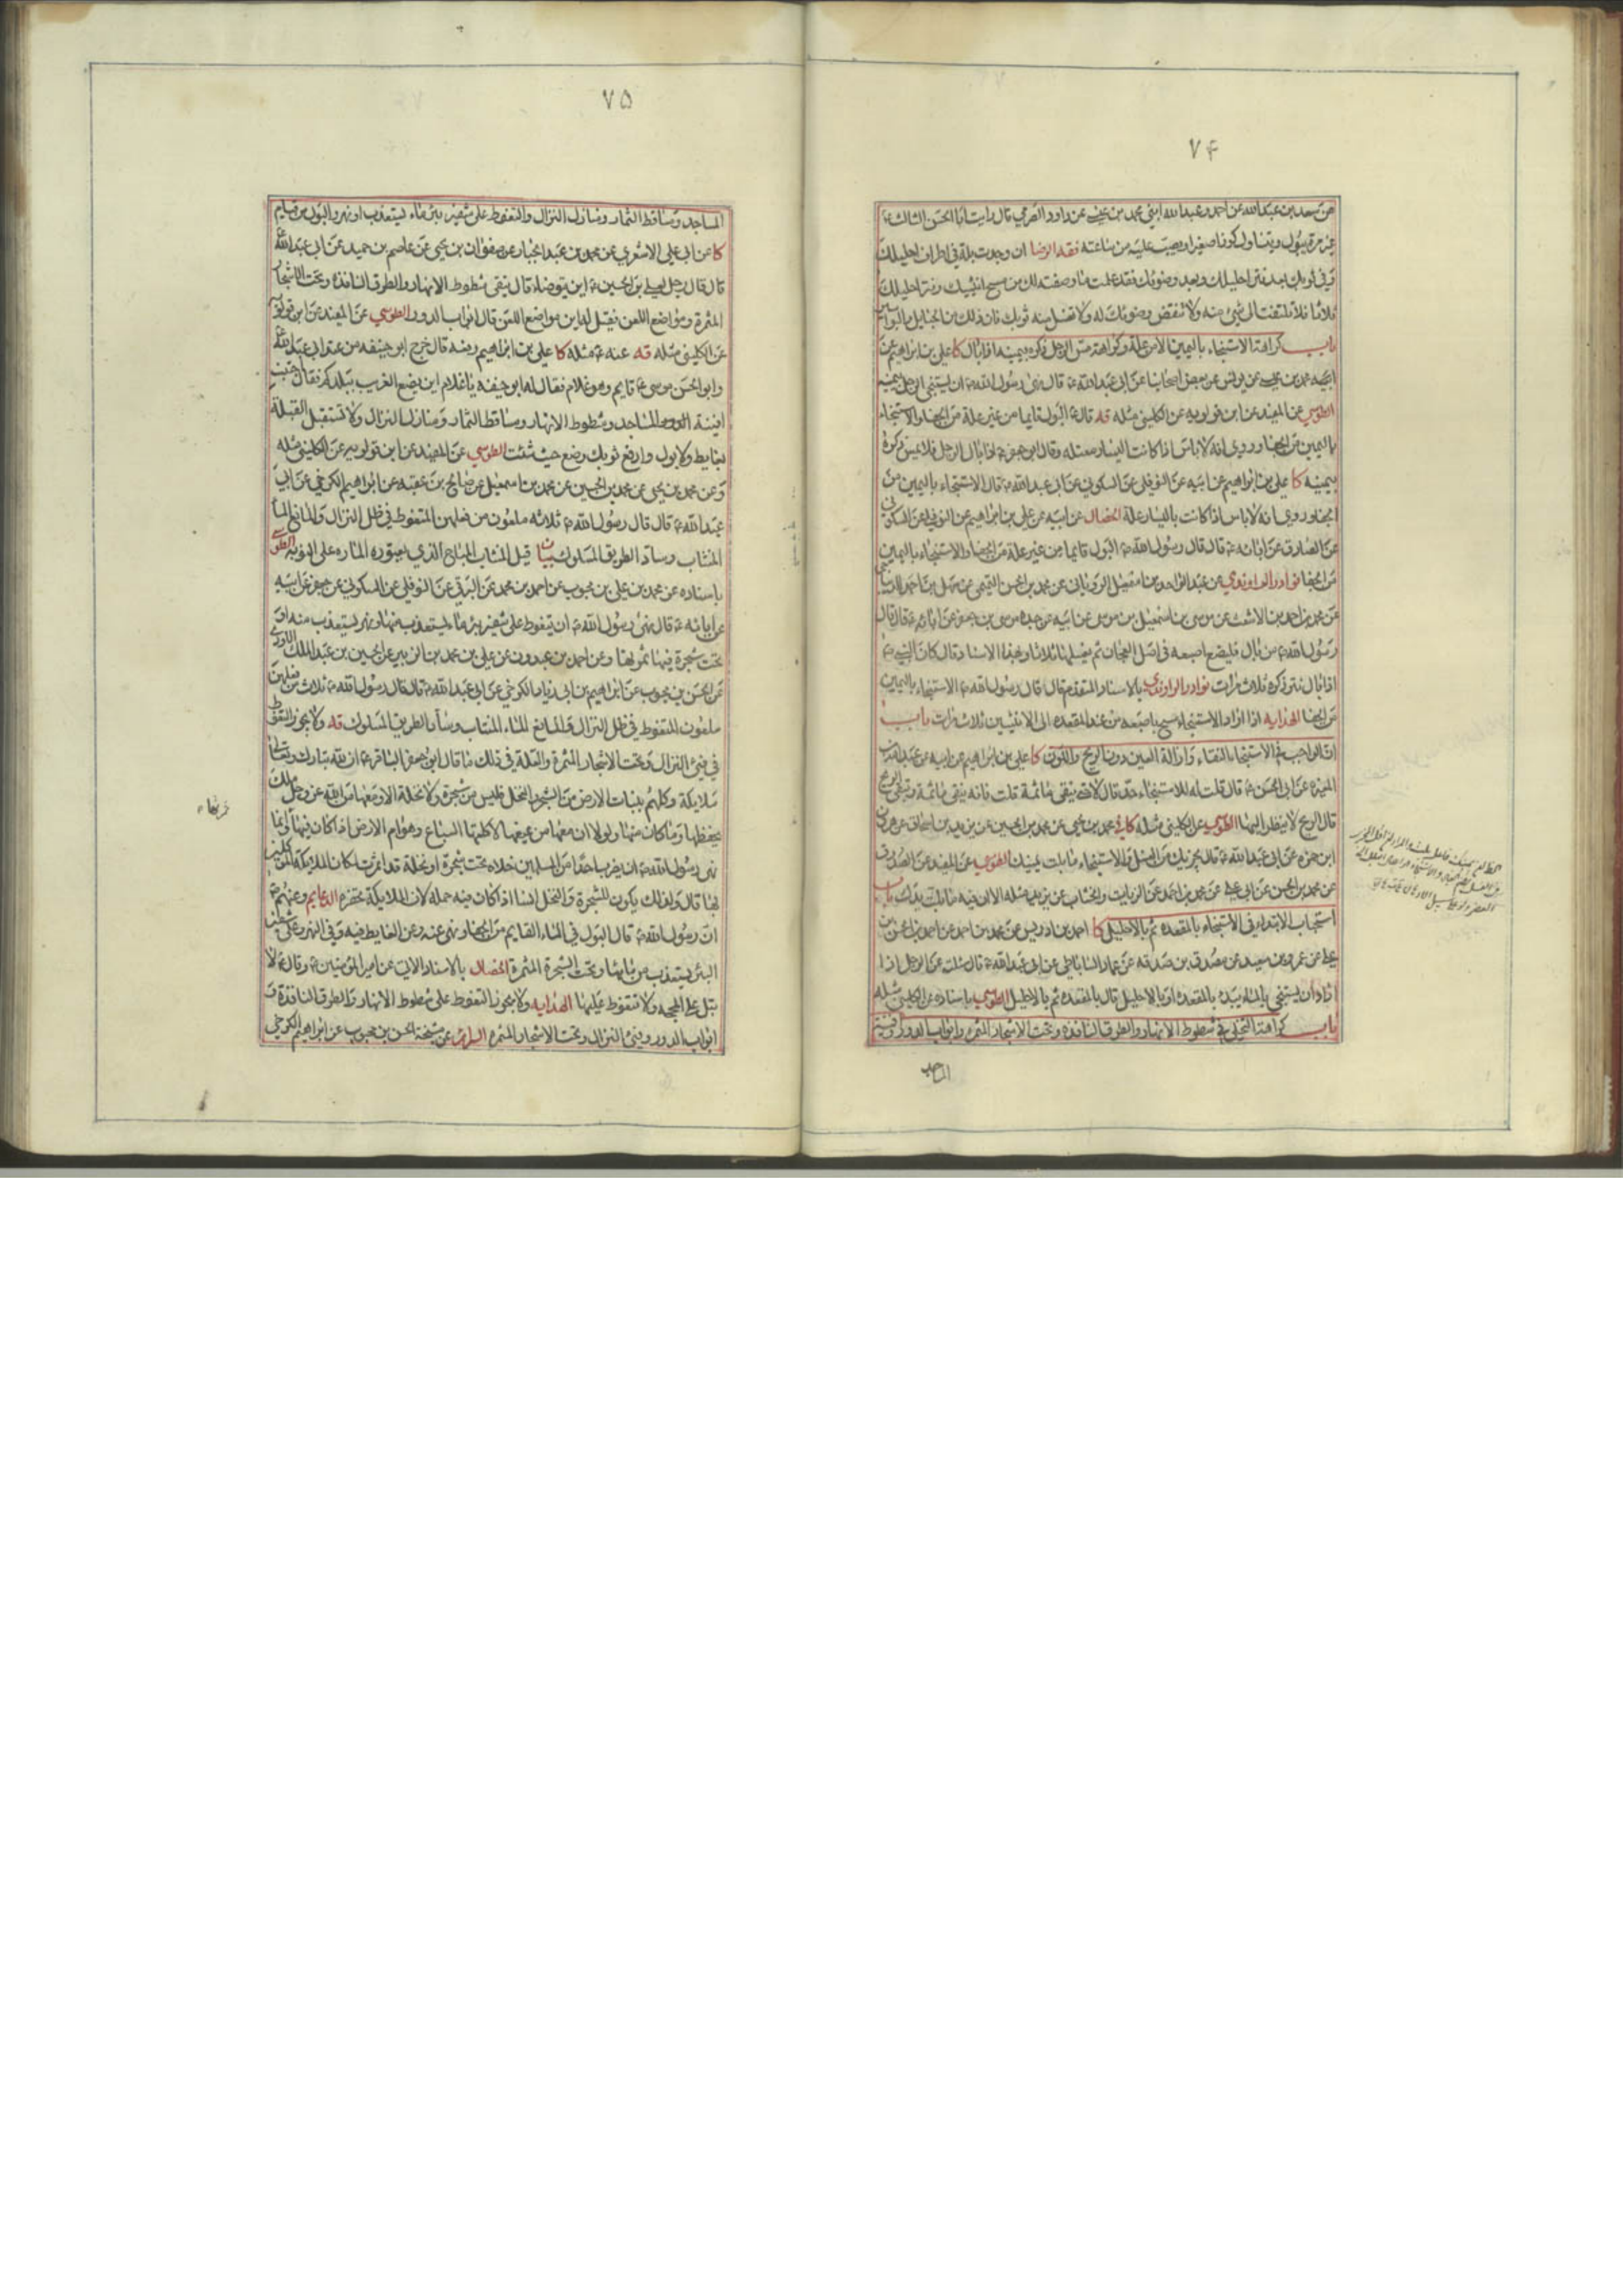 ٧۴
عن سعد بن عبد الله عن احمد وعبد الله ابني محمد بن عيسى عن داود الصرمي قال رايت ابا الحسن الثالث ع
غير مرة يبول ويتناول كوزا صغيرا ويصب عليه من ساعته فقه الرضا ان وجدت بلة في اطراف احليلك
وفي ثوبك بعد نتر احليلك وبعد وضوئك فقد علمت ما وصفته لك من مسح انثييك ونتر احليلك
ثلاثا فلا تلتفت الى شئ منه ولا تنقض وضوئك له ولا تغسل منه ثوبك فان ذلك من الحبايل والبواسير
باب كراهة الاستنجاء باليمين الا من علة وكراهة مس الرجل ذكره بيمينه اذا بال كا علي بن ابراهيم عن
ابيه محمد بن عيسى عن يونس عن بعض اصحابنا عن ابي عبد الله ع قال نهى رسول الله ص ان يستنجي الرجل بيمينه
الطوسي عن المفيد عن ابن قولويه عن الكليني مثله قه قال ع البول قايما من غير علة من الجفاء والاستنجاء
باليمين من الجفا وروي انه لا باس اذا كانت اليسار معتله وقال ابو جعفر ع اذا بال الرجل فلا يمس ذكره
بيمينه كا علي بن ابراهيم عن ابيه عن النوفلي عن السكوني عن ابي عبد الله ع قال الاستنجاء باليمين من
الجفا وروي انه لا باس اذا كانت باليسار علة الخصال عن ابيه عن علي بن ابراهيم عن النوفلي عن السكوني
عن الصادق عن ابائه ع قال قال رسول الله ص البول قايما من غير علة من الجفا والاستنجاء باليمين
من الجفا نوادر الراوندي عن عبد الواحد بن اسمعيل الروياني عن محمد بن الحسن التميمي عن سهل بن احمد الديباجي
عن محمد بن محمد بن الاشعث عن موسى بن اسمعيل بن موسى عن ابيه عن جده موسى بن جعفر عن ابائه ع قال قال
رسول الله ص من بال فليضع اصبعه في اصل العجان ثم يسلها ثلاثا وبهذا الاسناد قال كان النبي ص
اذا بال نتر ذكره ثلاث مرات نوادر الراوندي بالاسناد المتقدم قال قال رسول الله ص الاستنجاء باليمين
من الجفا الهدايه اذا اراد الاستنجاء مسح باصبعه من عند المقعده الى الانثيين ثلاث مرات باب
ان الواجب في الاستنجاء النقاء وازالة العين دون الريح واللون كا علي بن ابراهيم عن ابيه عن عبد الله بن
المغيرة عن ابي الحسن ع قال قلت له للاستنجاء حد قال لا حتى ينقي ما ثمة قلت فانه ينقي ما ثمة ويبقى الريح
قال الريح لا ينظر اليها الطوسي عن الكليني مثله كا محمد بن يحيى عن محمد بن الحسين عن يزيد بن اسحاق عن هرون
ابن حمزه عن ابي عبد الله ع قال يجزيك من الغسل والاستنجاء ما بلت يمينك الطوسي عن المفيد عن الصدوق
عن محمد بن الحسن عن ابي علي عن محمد بن احمد عن الزيات والخشاب عن يزيد مثله الا ان فيه ما بلت يدك باب
استحباب الابتداء في الاستنجاء بالمقعده ثم بالاحليل كا احمد بن ادريس عن محمد بن احمد عن احمد بن الحسن بن
علي عن عمرو بن سعيد عن مصدق بن صدقه عن عمار الساباطي عن ابي عبد الله ع قال سئلته عن الرجل اذا
اراد ان يستنجي بالماء يبدء بالمقعدة او بالاحليل قال بالمقعدة ثم بالاحليل الطوسي باسناده عن الكليني مثله
باب كراهة التخلي في شطوط الانهار والطرق النافذه وتحت الاشجار المثمره وابواب الدور وافنية
المساجد
٧۵
المساجد ومساقط الثمار ومنازل النزال والتغوط على شفير بئر ماء يستعذب او نهر والبول من قيام
كا عن ابي علي الاشعري عن محمد بن عبد الجبار عن صفوان بن يحيى عن عاصم بن حميد عن ابي عبد الله ع
قال قال رجل لعلي بن الحسين ع اين يتوضاء قال يتقى شطوط الانهار والطرق النافذة وتحت الاشجار
المثمرة ومواضع اللعن فقيل له اين مواضع اللعن قال ابواب الدور الطوسي عن المفيد عن ابن قولويه
عن الكليني مثله قه عنه ع مثله كا علي بن ابراهيم رفعه قال خرج ابو حنيفه من عند ابي عبد الله ع
وابو الحسن موسى ع قايم وهو غلام فقال له ابو حنيفه يا غلام اين يضع الغريب ببلدكم فقال اجتنب
افنية المساجد وشطوط الانهار ومساقط الثمار ومنازل النزال ولا تستقبل القبلة
بغايط ولا بول وارفع ثوبك وضع حيث شئت الطوسي عن المفيد عن ابن قولويه عن الكليني مثله
وعن محمد بن يحيى عن محمد بن الحسين عن محمد بن اسمعيل عن صالح بن عقبه عن ابراهيم الكرخي عن ابي
عبد الله ع قال قال رسول الله ص ثلاثه ملعون من فعلهن المتغوط في ظل النزال والمانع الماء
المنتاب وساد الطريق المسلوك بيان قيل المنتاب المباح الذي يعتوره الماره على النوبه الطوسي
باسناده عن محمد بن علي بن محبوب عن احمد بن محمد عن البرقي عن النوفلي عن السكوني عن جعفر عن ابيه
عن ابائه ع قال نهى رسول الله ص ان يتغوط على شفير بئر ماء يستعذب منها او نهر يستعذب منه او
تحت شجرة فيها ثمرتها وعن احمد بن عبدون عن علي بن محمد بن الزبير عن الحسين بن عبد الملك الاودي
عن الحسن بن محبوب عن ابراهيم بن ابي زياد الكرخي عن ابي عبد الله ع قال قال رسول الله ص ثلاث من فعلهن
ملعون المتغوط في ظل النزال والمانع الماء المنتاب وساد الطريق المسلوك قه ولا يجوز التغوط
في فيئ النزال وتحت الاشجار المثمرة والعلة في ذلك ما قال ابو جعفر الباقر ع ان لله تبارك وتعالى
ملايكة وكلهم بنبات الارض من الشجر والنخل فليس من شجرة ولا نخلة الا ومعها من الله عز وجل ملك
يحفظها وما كان منها ولولا ان معها من يمنعها لاكلتها السباع وهوام الارض اذا كان فيها وانما
نهى رسول الله ص ان يضرب احد من المسلمين خلاه تحت شجرة او نخلة قد اثمرت لمكان الملائكة الموكلين
بها قال ولذلك يكون للشجرة والنخل انسا اذا كان فيه حمله لان الملايكة تحضره الدعايم وعنهم ع
ان رسول الله ص قال البول في الماء القايم من الجفا ونهى عنه وعن الغايط فيه وفي النهر وعلى شفير
البئر يستعذب من مائها وتحت الشجرة المثمرة الخصال بالاسناد الاتي عن امير المؤمنين ع وقال ع لا
تبل على المحجه ولا تتغوط عليها الهدايه ولا يجوز التغوط على شطوط الانهار والطرق النافذة و
ابواب الدور وفيئ النزال وتحت الاشجار المثمره السرائر عن مشيخة الحسن بن محبوب عن ابراهيم الكرخي
ثمرتها ء